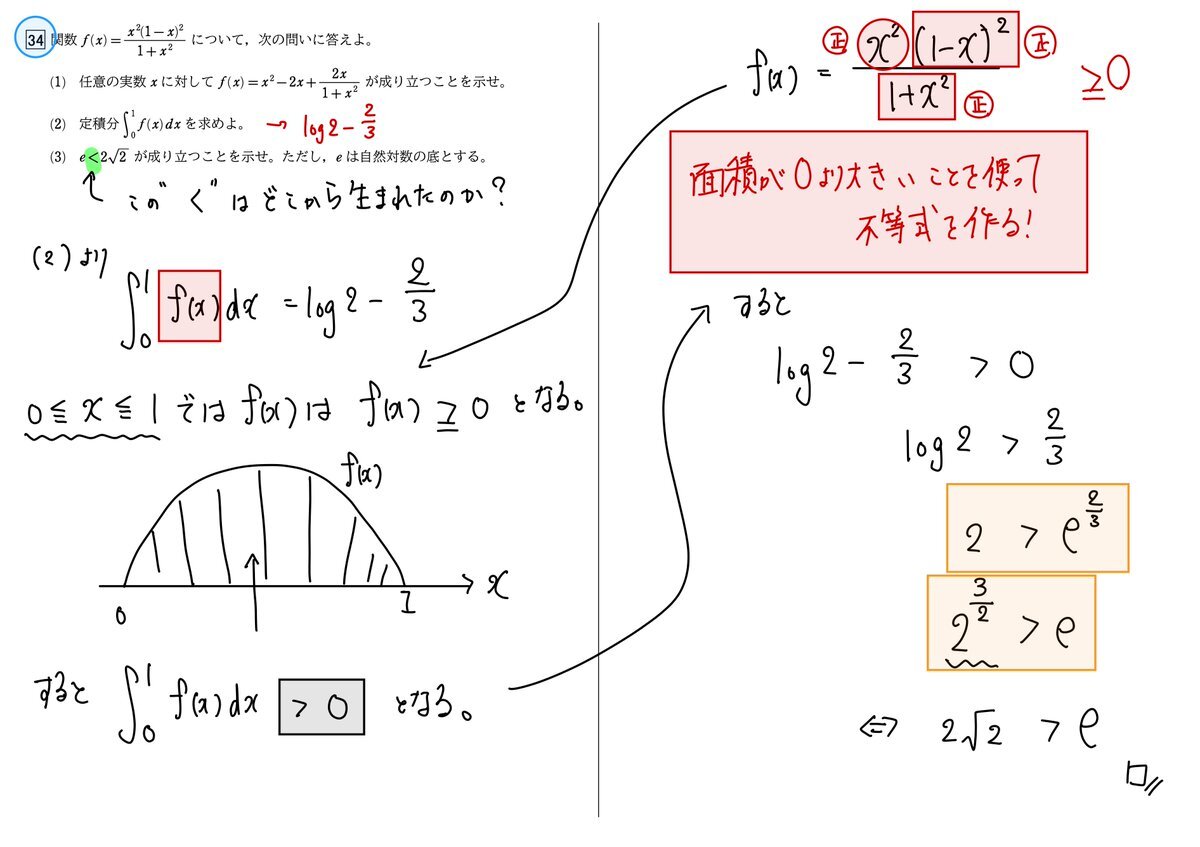 34 関数 f(x)=x²(1-x)²/(1+x²) について，次の問いに答えよ。
(1) 任意の実数 x に対して f(x)=x²-2x+2x/(1+x²) が成り立つことを示せ。
(2) 定積分∫₀¹f(x)dx を求めよ。 → log2 - 2/3
(3) e<2√2 が成り立つことを示せ。ただし，e は自然対数の底とする。
この"く"はどこから生まれたのか？
(2)より
∫₀¹ f(x)dx = log2 - 2/3
0≦x≦1 では f(x)は f(x)≧0 となる。
f(x)
0 1 x
すると ∫₀¹ f(x)dx > 0 となる。
f(x) = 正 x² (1-x)² 正 / 1+x² 正 ≧0
面積が0より大きいことを使って
不等式を作る!
すると
log2 - 2/3 > 0
log2 > 2/3
2 > e^(2/3)
2^(3/2) > e
⇔ 2√2 > e
□//